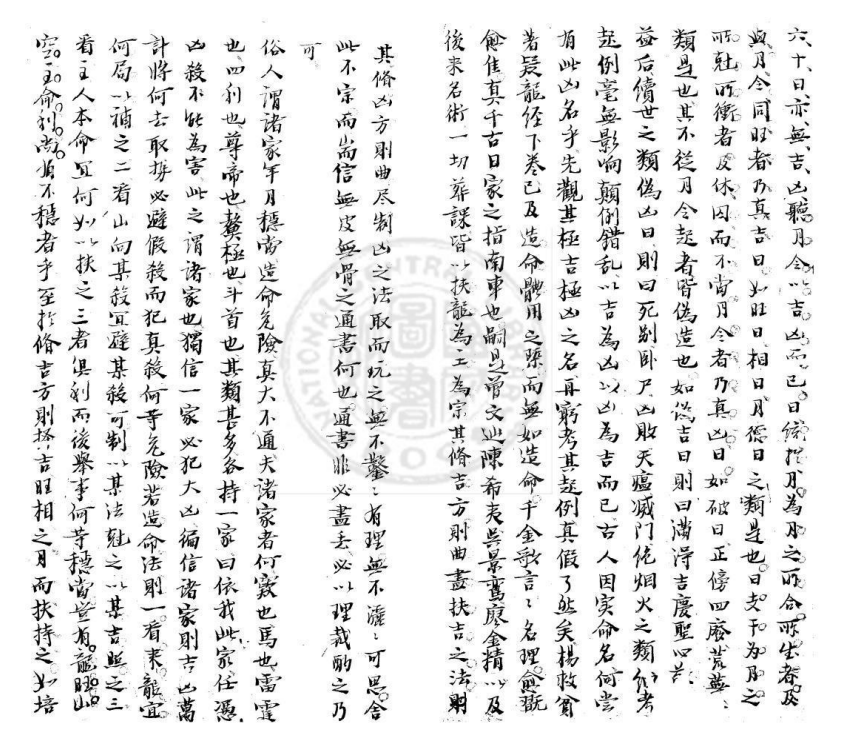 六十日亦無吉凶聽月令以吉凶而已日備于月為月之所合所生者及
與月令同旺者乃真吉日如旺日相日月德日之類是也日支干為月之
所尅所衝者及休囚而不當月令者乃真凶日如破日正傍四廢荒蕪之
類是也其不從月令起者皆偽造也如偽吉日則曰滿淂吉慶聖心普
益后續世之類偽凶日則曰死别卧尸凶敗天瘟滅門絶烟火之類細考
起例毫無影响顛倒錯乱以吉為凶以凶為吉而已古人因実命名何嘗
有此凶名乎先觀其極吉極凶之名再窮考其起例真假了然矣楊救貧
著疑龍经下卷已及造命體用之槩而無如造命千金歌言言名理愈翫
愈佳真千古日家之指南車也嗣是曾文辿陳希夷吳景鸞廖金精以及
後來名術一切葬課皆以扶龍為主為宗其脩吉方則曲盡扶吉之法
其脩凶方則曲尽制凶之法取而玩之無不鑿鑿有理無不 可思舍
此不宗而耑信無皮無骨之通書何也通書非必盡丢必以理裁酌之乃
可
俗人謂諸家年月穩當造命危險真大不通夫諸家者何竅也馬也雷霆
也四利也尊帝也鰲極也斗首也其類甚多各持一家曰依我此家任憑
凶殺不能為害此之謂諸家也獨信一家必犯大凶徧信諸家則吉凶萬
計將何去取拚必避假殺而犯真殺何等危險若造命法則一看来龍宜
何局以補之二看山向其殺宜避某殺可制以某法尅之以某吉照之三
看主人本命宜何如以扶之三者俱利而後舉事何等穩當豈有龍旺山
空主命利尚有不穩者乎至於脩吉方則擇吉旺相之月而扶持之如培